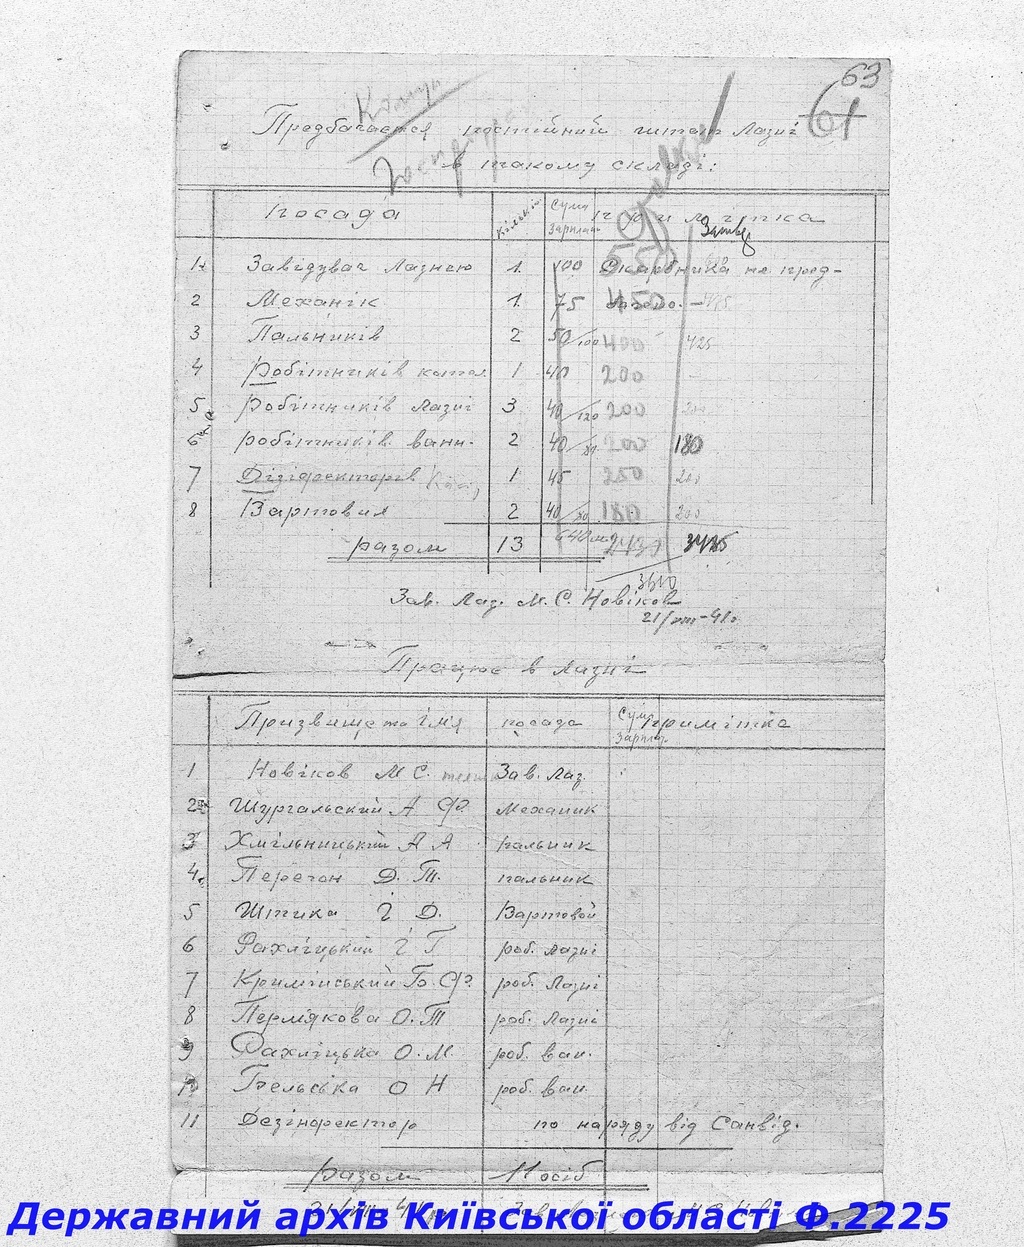 63
61
Предбачается постійний штат Лазні
в такому складі:
посада Кількіс. Сума Зарплат примітка
Затвер
1. Завідувач Лазнею 1. 100 550 Скарбника не пред-
2 Механік 1. 75 450
3 Пальників 2 50/100 400 425
4 Робітників кот. 1 40 200
5 Робітників Лазні 3 40/120 200
6 робітників ванн. 2 40/80 200 180
7 Дізінфекторів 1 45 250
8 Вартовия 2 40/80 180 200
разом 13 640
3610
Зав. Лаз. М. С. Новіков
21/VIII-41г.
Працює в Лазні
Призвище та Ім'я посада Сума Зарплат примітка
1 Новіков М С. Зав. Лаз.
2 Шургальский А Ф. механик
3 Хмільницький А А пальник
4. Перегон Д. Т. пальник
5 Шпика І Д. Вартовой
6 Рахліцький І Г роб. Лазні
7 Кримінський Б. Ф. роб. Лазні
8 Пермякова О. Т роб. Лазні
9 Рахліцька О. М. роб. ван.
10 Бельська О Н роб. ван.
11 Дезінфектор по наряду від Санвід.
разом 11 осіб
Державний архів Київської області Ф.2225